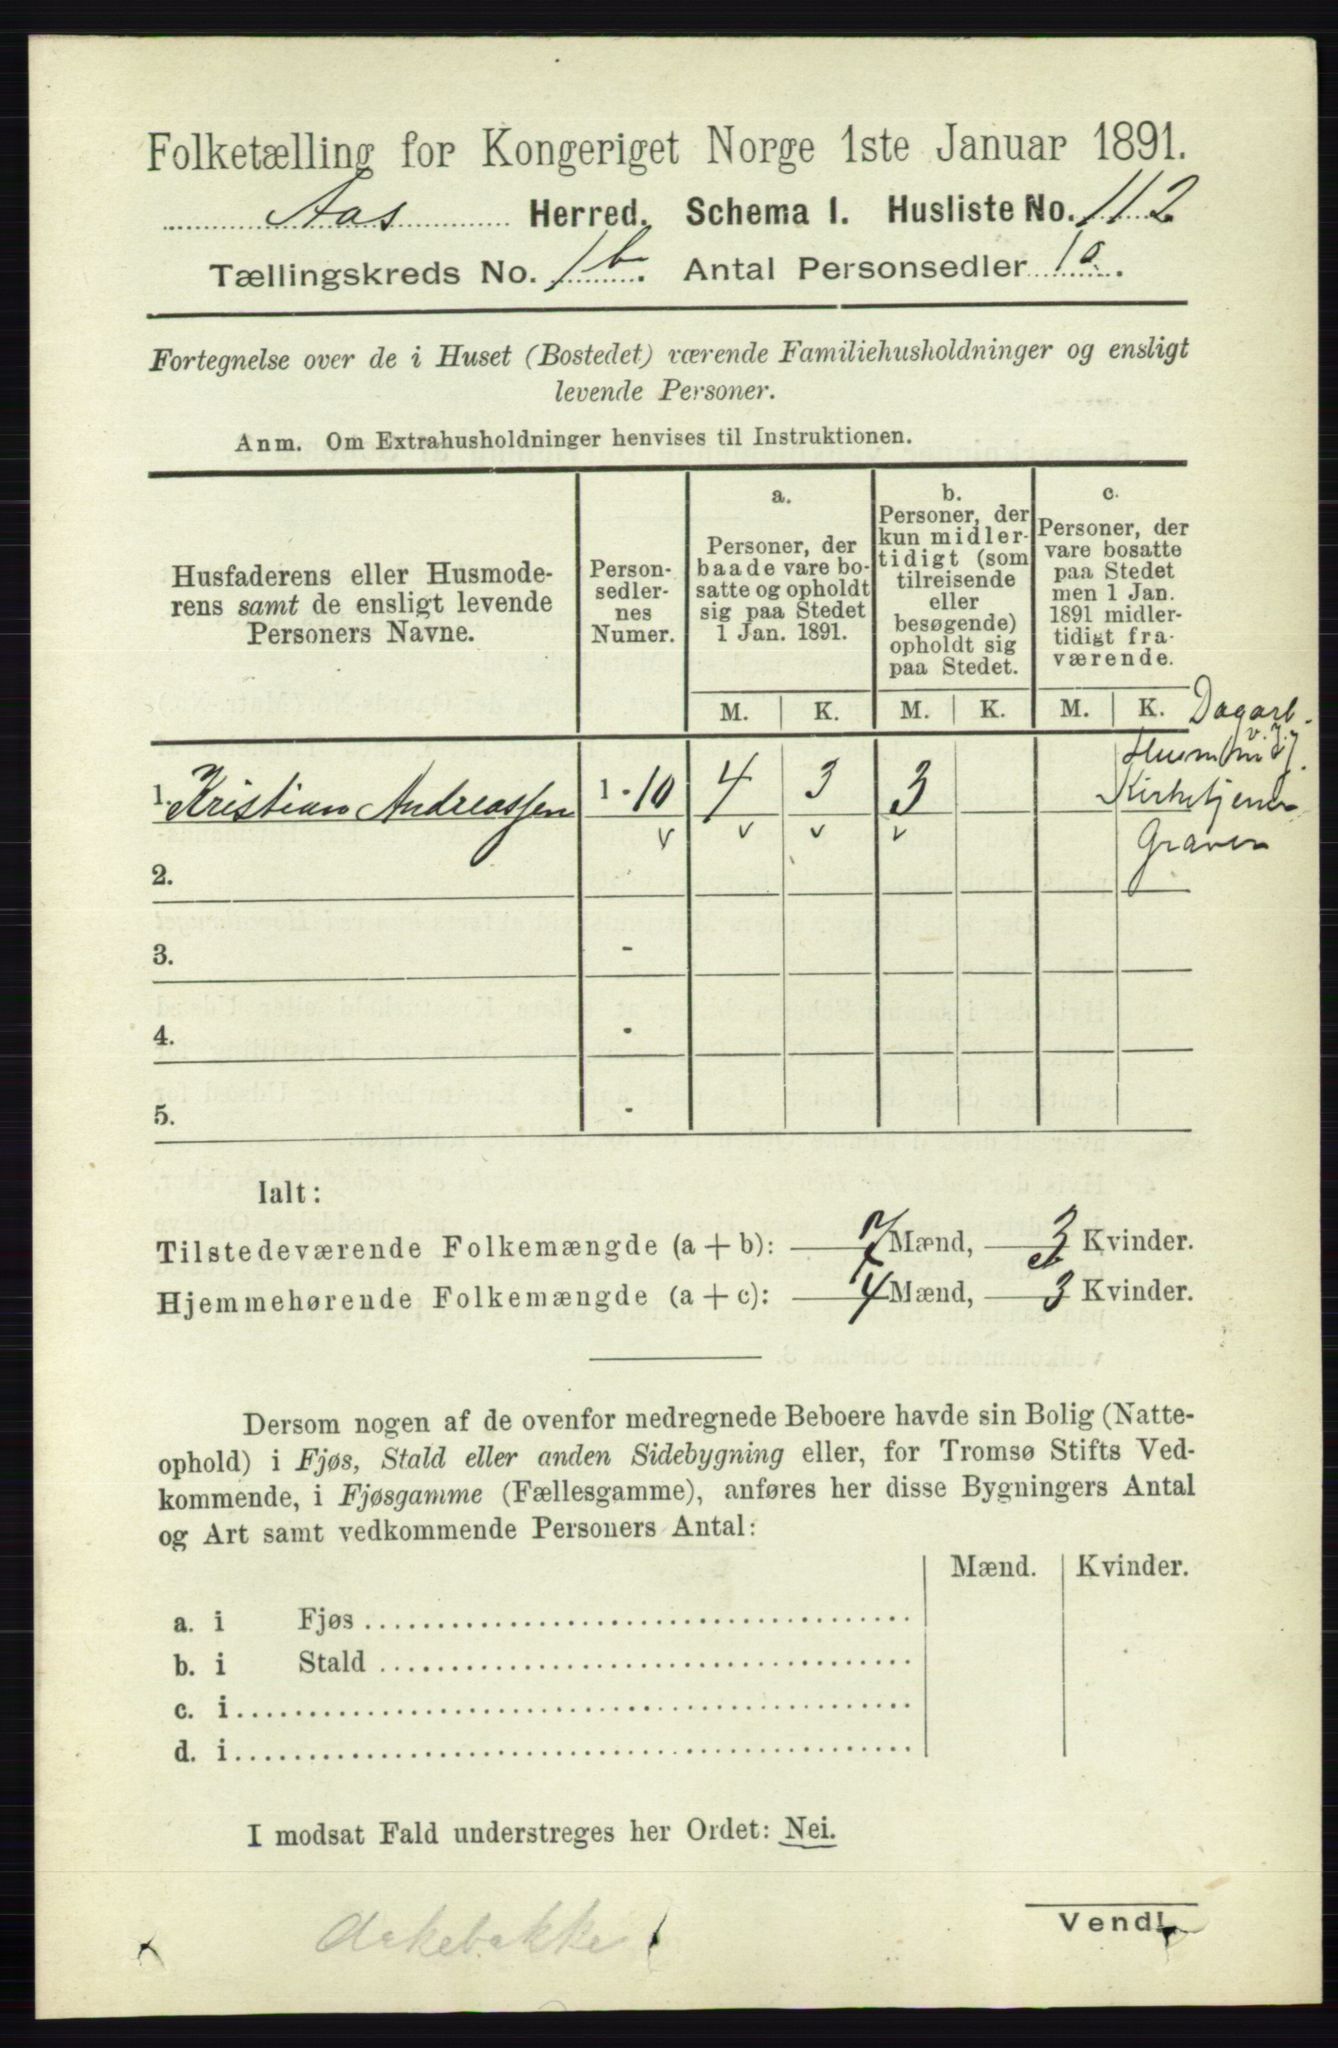 Folketælling for Kongeriget Norge 1ste Januar 1891.
Aas Herred. Schema I. Husliste No. 112
Tællingskreds No. 1 b. Antal Personsedler 10.
Fortegnelse over de i Huset (Bostedet) værende Familiehusholdninger og ensligt
levende Personer.
Anm. Om Extrahusholdninger henvises til Instruktionen.
Husfaderens eller Husmode-
rens samt de ensligt levende
Personers Navne.
Person-
sedler-
nes
Numer.
a.
Personer, der
baade vare bo-
satte og opholdt
sig paa Stedet
1 Jan. 1891.
b.
Personer, der
kun midler-
tidigt (som
tilreisende
eller
besøgende)
opholdt sig
paa Stedet.
c.
Personer, der
vare bosatte
paa Stedet
men 1 Jan.
1891 midler-
tidigt fra-
værende.
M. K. M. K. M. K.
Dagarb.
v. J.
1. Kristian Andreassen 1 - 10 4 3 3
Kirketjener
Graver
2.
3. -
4. -
5. -
Ialt:
Tilstedeværende Folkemængde (a + b): 7 Mænd, 3 Kvinder.
Hjemmehørende Folkemængde (a + c): 4 Mænd, 3 Kvinder.
Dersom nogen af de ovenfor medregnede Beboere havde sin Bolig (Natte-
ophold) i Fjøs, Stald eller anden Sidebygning eller, for Tromsø Stifts Ved-
kommende, i Fjøsgamme (Fællesgamme), anføres her disse Bygningers Antal
og Art samt vedkommende Personers Antal:
Mænd. Kvinder.
a. i Fjøs
b. i Stald
c. i
d. i
I modsat Fald understreges her Ordet: Nei.
Vend!
Aakebakke